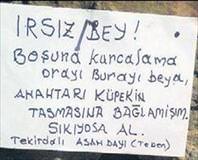 IRSIZ BEY!
BOŞUNA KURCALAMA
ORAYI BURAYI BEYA,
ANAHTARI KÜPEKİN
TASMASINA BAĞLAMIŞIM.
SIKIYOSA AL.
TEKİRDALI ASAN DAYI (Tepem)